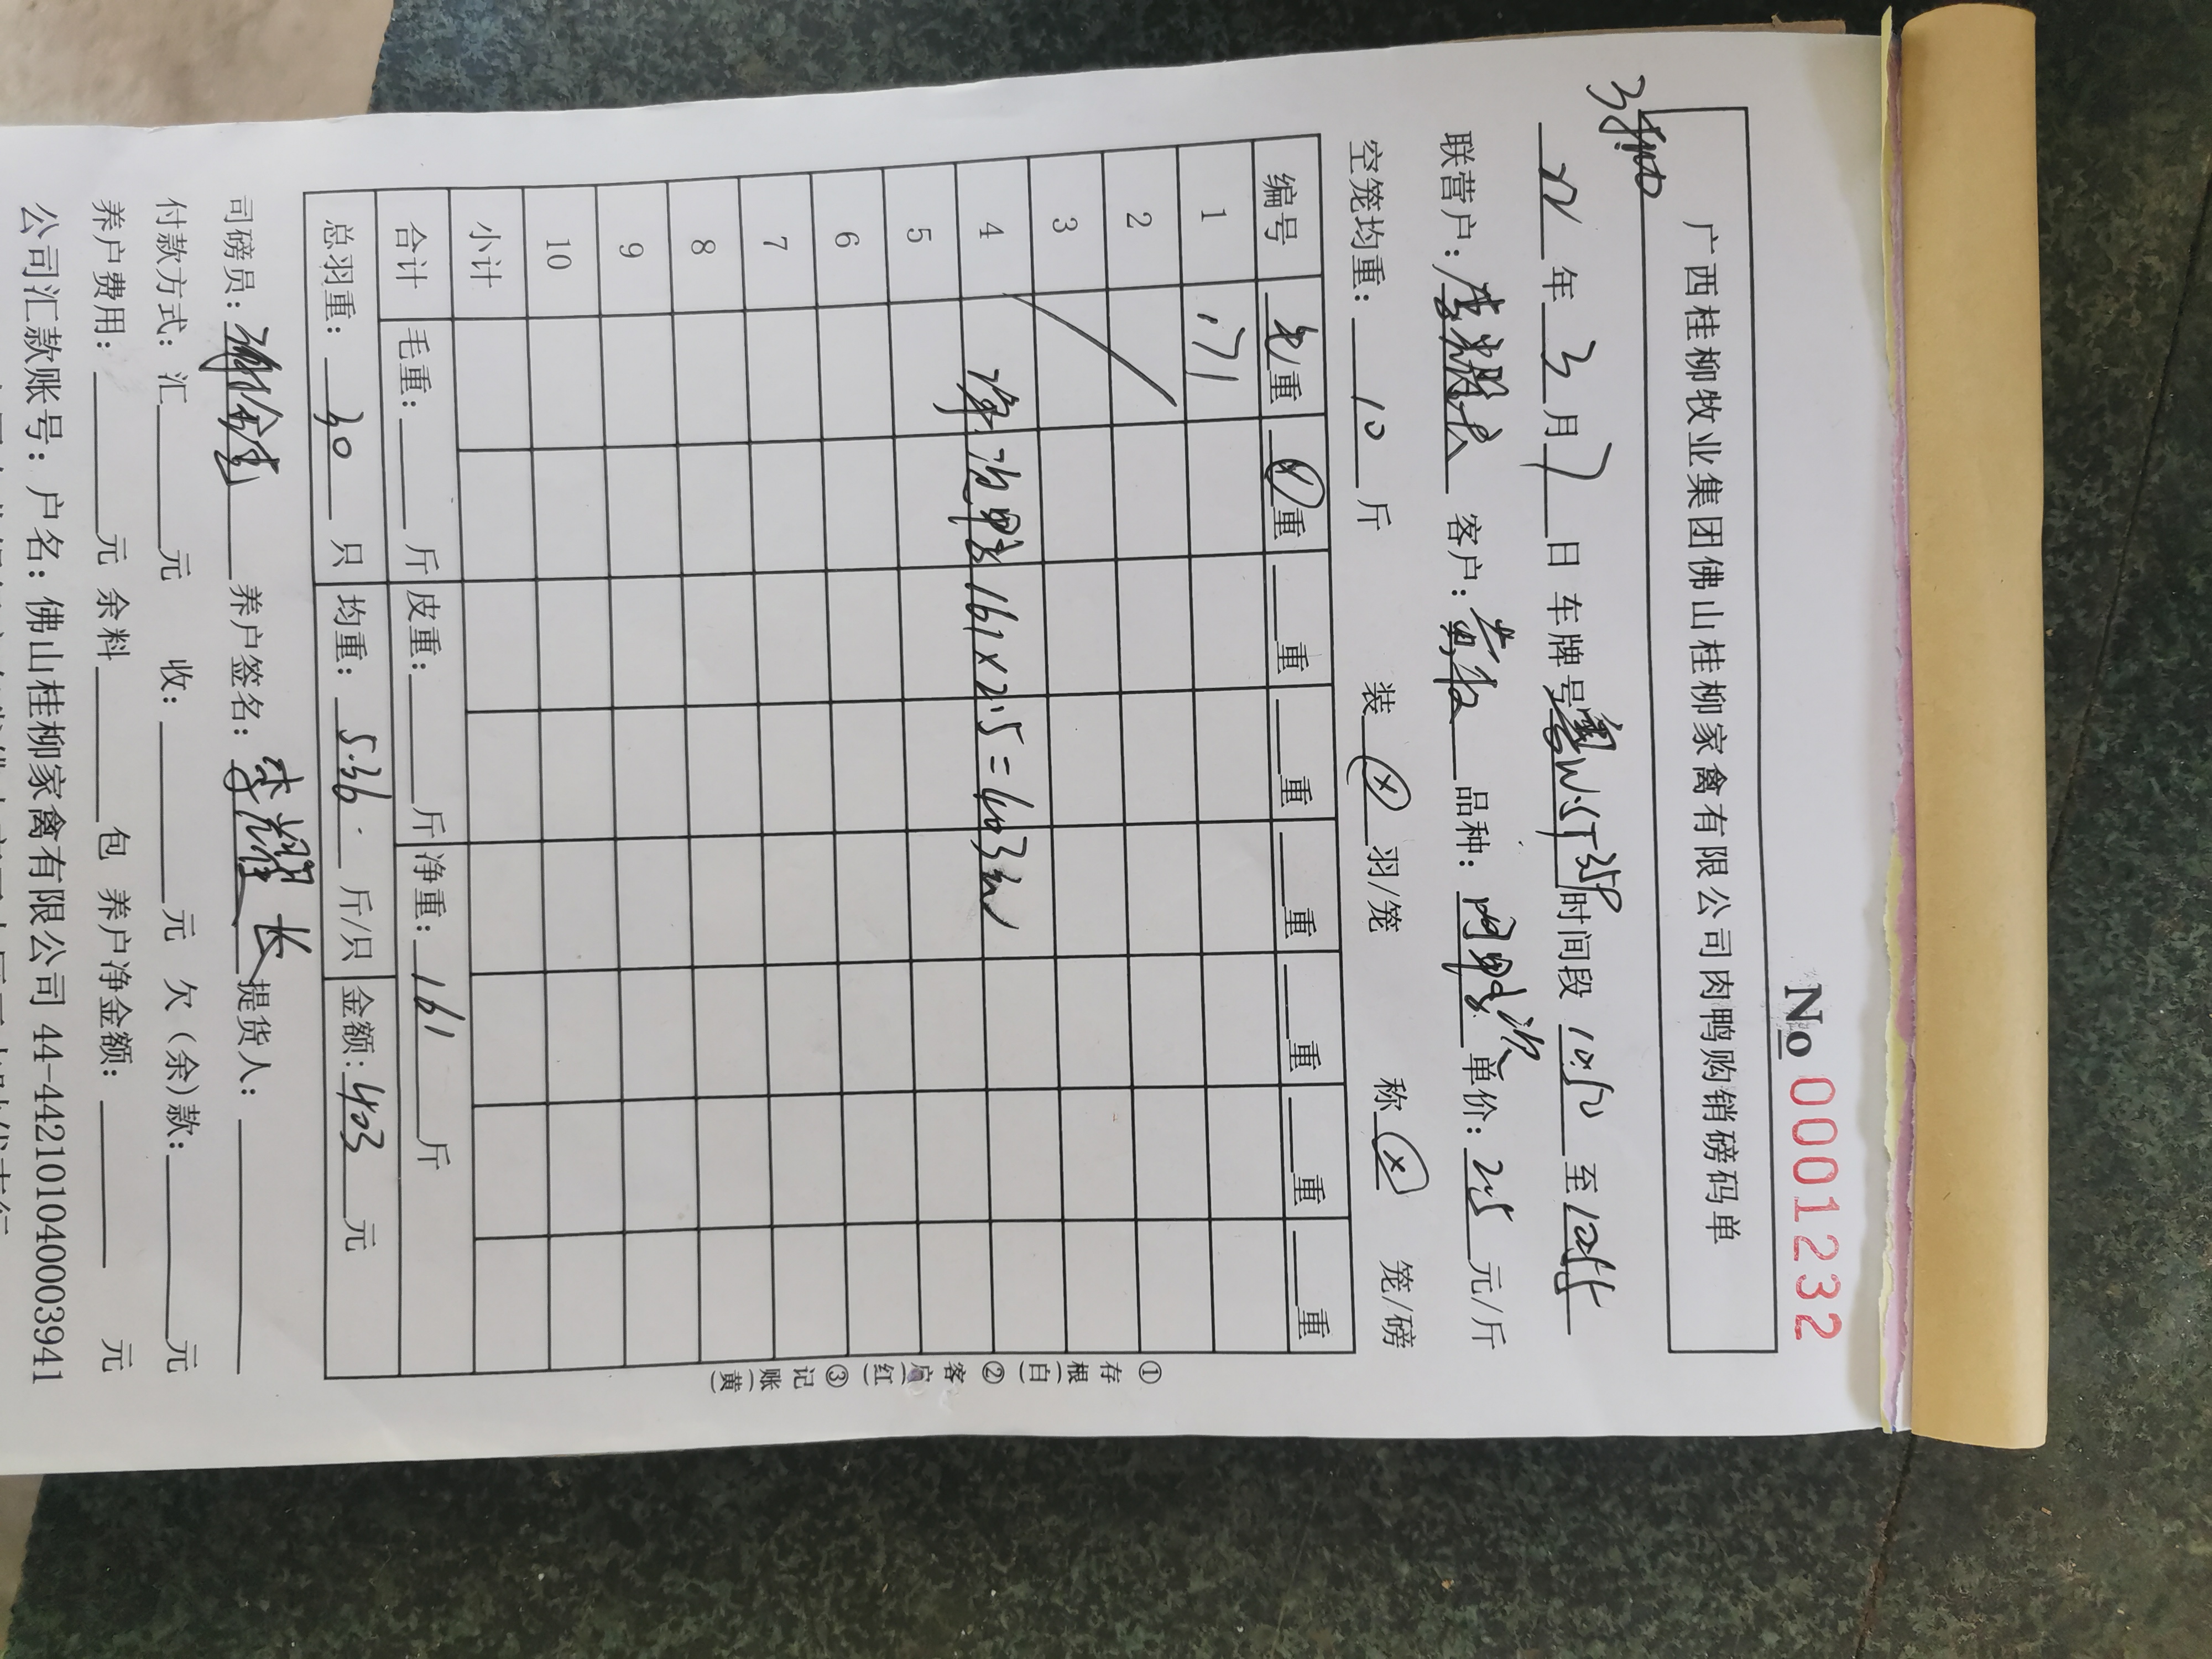 No 0001232
广西桂柳牧业集团佛山桂柳家禽有限公司肉鸭购销磅码单
22年3月7日 车牌号粤WST358时间段10:50至10:55
联营户: 客户: 品种: 肉鸭次 单价: 2.5元/斤
空笼均重: 10斤 装 × 羽/笼 称 × 笼/磅
编号 毛重 ×重 重 重 重 重 重 重
1 171
2
3
4 净次鸭 161×2.5=403元
5
6
7
8
9
10
小计
合计 毛重: 斤 皮重: 斤 净重: 161 斤
总羽重: 30 只 均重: 5.36. 斤/只 金额: 403 元
①存根(白)②客户(红)③记账(黄)
司磅员: 养户签名: 李耀长 提货人:
付款方式: 汇 元 收: 元 欠(余)款: 元
养户费用: 元 余料 包 养户净金额: 元
公司汇款账号: 户名: 佛山桂柳家禽有限公司 44-442101040003941